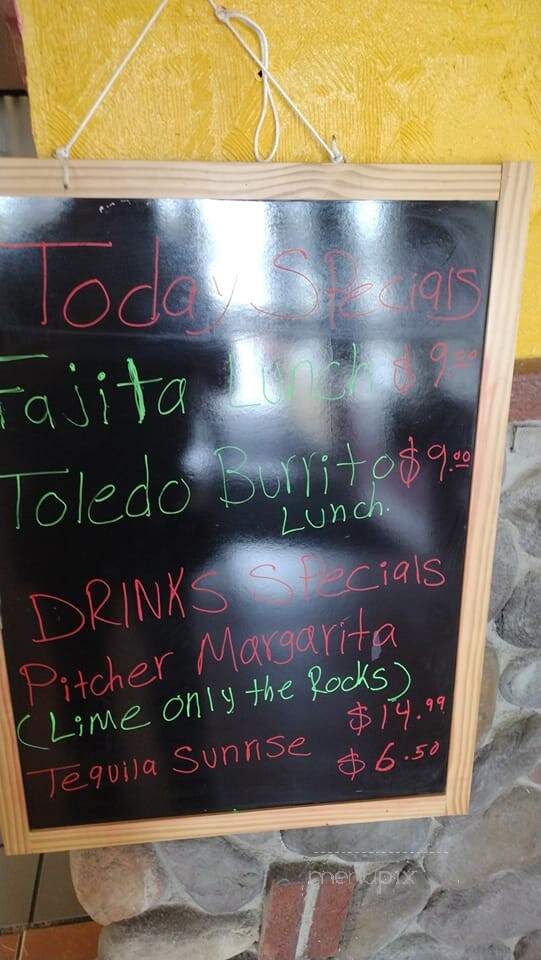 Today Specials
Fajita Lunch $9.00
Toledo Burrito $9.00
Lunch.
DRINKS Specials
Pitcher Margarita
(Lime only the Rocks)
$14.99
Tequila Sunrise $6.50
menupix